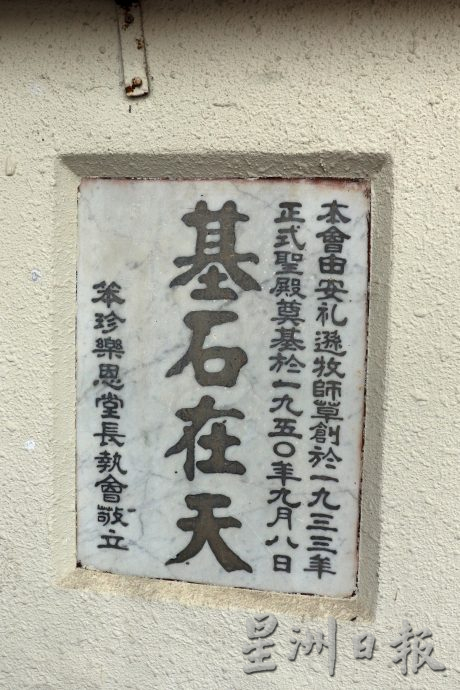 本會由安礼遜牧師草創於一九三三年
正式聖殿奠基於一九五〇年九月八日
基石在天
笨珍樂恩堂長執會敬立
星洲日報